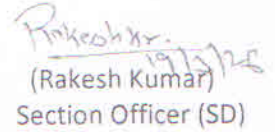 Rakeshkr.
(Rakesh Kumar)
Section Officer (SD)